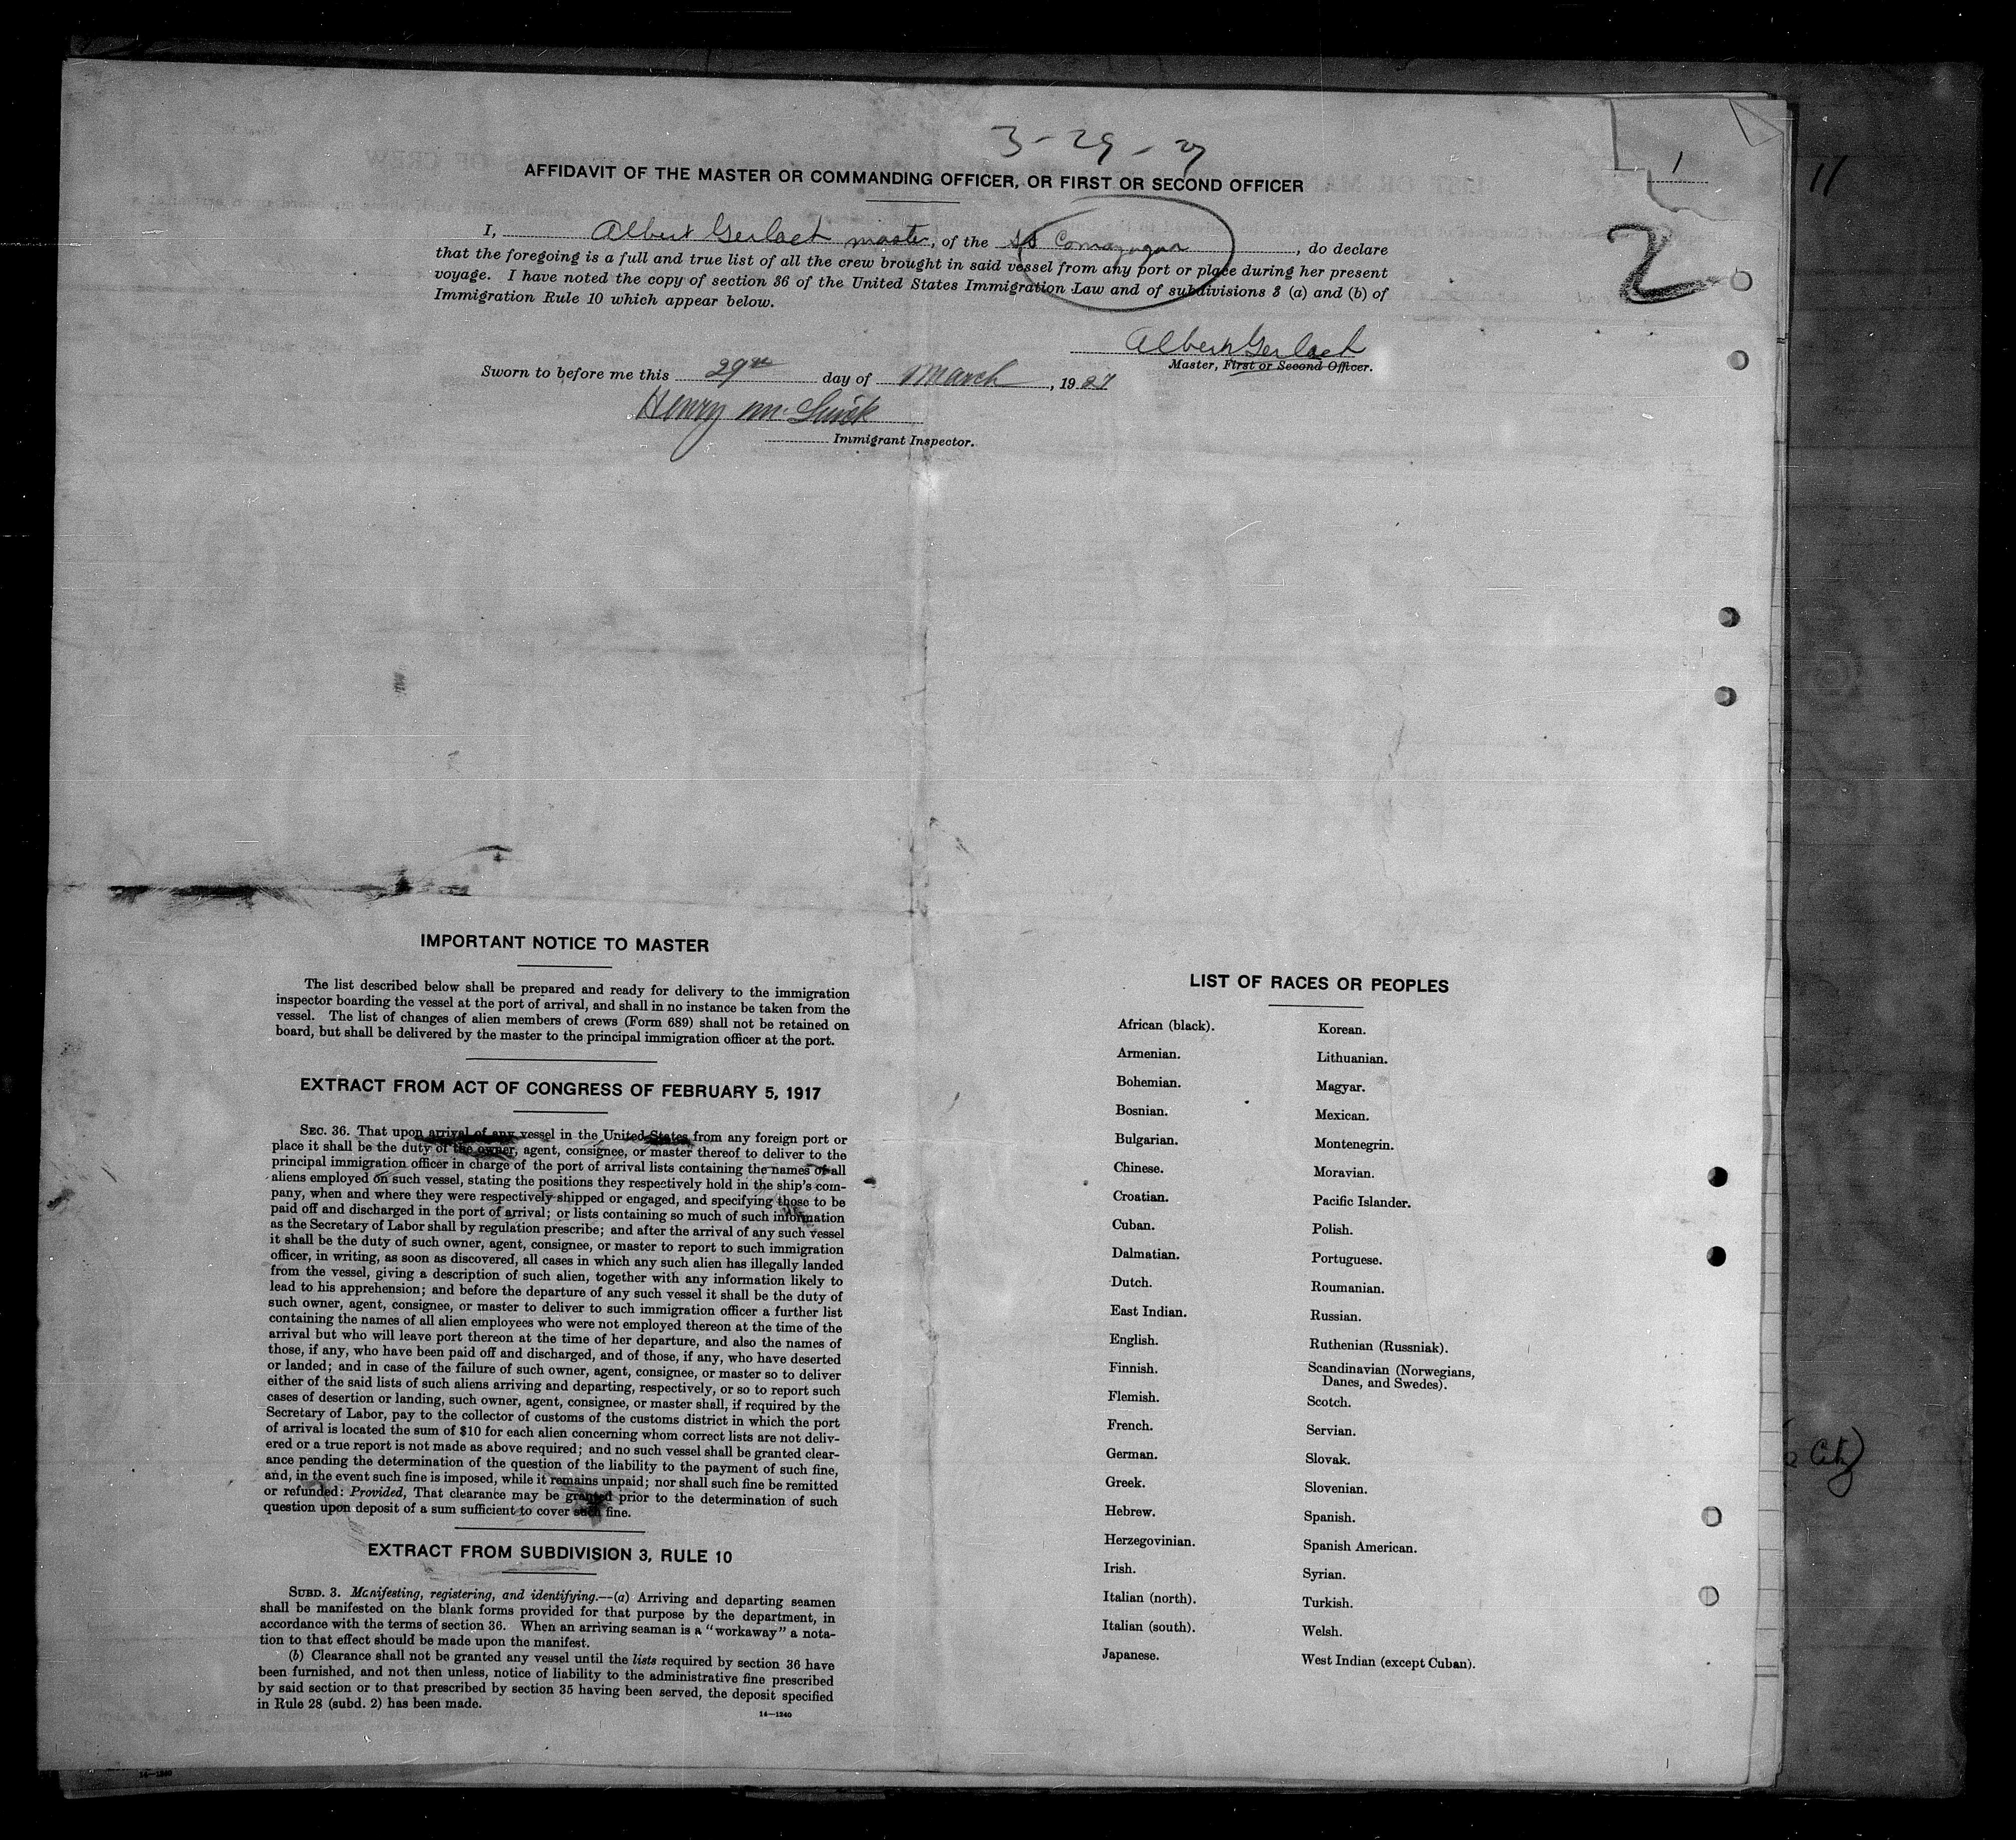 3-29-27
AFFIDAVIT OF THE MASTER OR COMMANDING OFFICER, OR FIRST OR SECOND OFFICER
1
11
I, Albert Gerlach master, of the SS Comayagua, do declare
that the foregoing is a full and true list of all the crew brought in said vessel from any port or place during her present
voyage. I have noted the copy of section 36 of the United States Immigration Law and of subdivisions 3 (a) and (b) of
Immigration Rule 10 which appear below.
2
Albert Gerlach
Master, First or Second Officer.
Sworn to before me this 29th day of March, 1927
Henry
Immigrant Inspector.
IMPORTANT NOTICE TO MASTER
The list described below shall be prepared and ready for delivery to the immigration
inspector boarding the vessel at the port of arrival, and shall in no instance be taken from the
vessel. The list of changes of alien members of crews (Form 689) shall not be retained on
board, but shall be delivered by the master to the principal immigration officer at the port.
EXTRACT FROM ACT OF CONGRESS OF FEBRUARY 5, 1917
SEC. 36. That upon arrival of any vessel in the United States from any foreign port or
place it shall be the duty of the owner, agent, consignee, or master thereof to deliver to the
principal immigration officer in charge of the port of arrival lists containing the names of all
aliens employed on such vessel, stating the positions they respectively hold in the ship's com-
pany, when and where they were respectively shipped or engaged, and specifying those to be
paid off and discharged in the port of arrival; or lists containing so much of such information
as the Secretary of Labor shall by regulation prescribe; and after the arrival of any such vessel
it shall be the duty of such owner, agent, consignee, or master to report to such immigration
officer, in writing, as soon as discovered, all cases in which any such alien has illegally landed
from the vessel, giving a description of such alien, together with any information likely to
lead to his apprehension; and before the departure of any such vessel it shall be the duty of
such owner, agent, consignee, or master to deliver to such immigration officer a further list
containing the names of all alien employees who were not employed thereon at the time of the
arrival but who will leave port thereon at the time of her departure, and also the names of
those, if any, who have been paid off and discharged, and of those, if any, who have deserted
or landed; and in case of the failure of such owner, agent, consignee, or master so to deliver
either of the said lists of such aliens arriving and departing, respectively, or so to report such
cases of desertion or landing, such owner, agent, consignee, or master shall, if required by the
Secretary of Labor, pay to the collector of customs of the customs district in which the port
of arrival is located the sum of $10 for each alien concerning whom correct lists are not deliv-
ered or a true report is not made as above required; and no such vessel shall be granted clear-
ance pending the determination of the question of the liability to the payment of such fine,
and, in the event such fine is imposed, while it remains unpaid; nor shall such fine be remitted
or refunded: Provided, That clearance may be granted prior to the determination of such
question upon deposit of a sum sufficient to cover such fine.
EXTRACT FROM SUBDIVISION 3, RULE 10
SUBD. 3. Manifesting, registering, and identifying.—(a) Arriving and departing seamen
shall be manifested on the blank forms provided for that purpose by the department, in
accordance with the terms of section 36. When an arriving seaman is a "workaway" a nota-
tion to that effect should be made upon the manifest.
(b) Clearance shall not be granted any vessel until the lists required by section 36 have
been furnished, and not then unless, notice of liability to the administrative fine prescribed
by said section or to that prescribed by section 35 having been served, the deposit specified
in Rule 28 (subd. 2) has been made.
14—1240
LIST OF RACES OR PEOPLES
African (black).
Armenian.
Bohemian.
Bosnian.
Bulgarian.
Chinese.
Croatian.
Cuban.
Dalmatian.
Dutch.
East Indian.
English.
Finnish.
Flemish.
French.
German.
Greek.
Hebrew.
Herzegovinian.
Irish.
Italian (north).
Italian (south).
Japanese.
Korean.
Lithuanian.
Magyar.
Mexican.
Montenegrin.
Moravian.
Pacific Islander.
Polish.
Portuguese.
Roumanian.
Russian.
Ruthenian (Russniak).
Scandinavian (Norwegians,
Danes, and Swedes).
Scotch.
Servian.
Slovak.
Slovenian.
Spanish.
Spanish American.
Syrian.
Turkish.
Welsh.
West Indian (except Cuban).
City)
14—1240